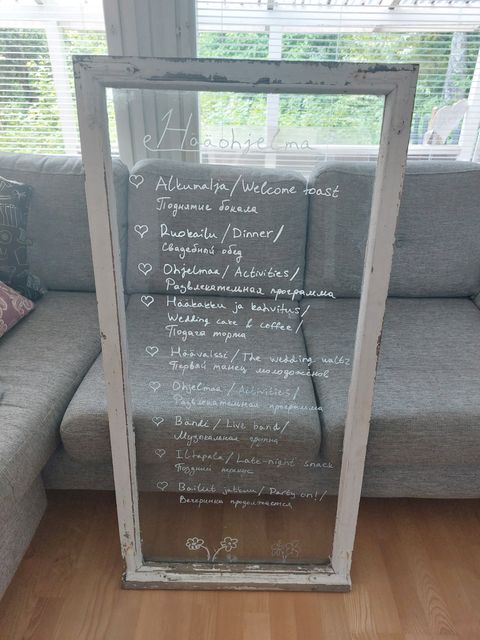 Hääohjelma
Alkumalja/Welcome toast
Поднятие бокала
Ruokailu/Dinner/
Свадебный обед
Ohjelmaa/Activities/
Развлекательная программа
Hääkakku ja kahvitus/
Wedding cake & coffee/
Подача торта
Häävalssi/The wedding waltz
Первый танец молодожёнов
Ohjelmaa/Activities/
Развлекательная программа
Bändi/Live band/
Музыкальная группа
Iltapala/Late-night snack
Поздний перекус
Bailut jatkuu/Party on!/
Вечеринка продолжается